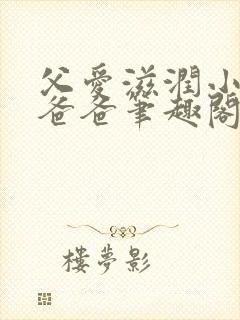 父愛滋潤小
爸爸筆趣閣
樓夢影